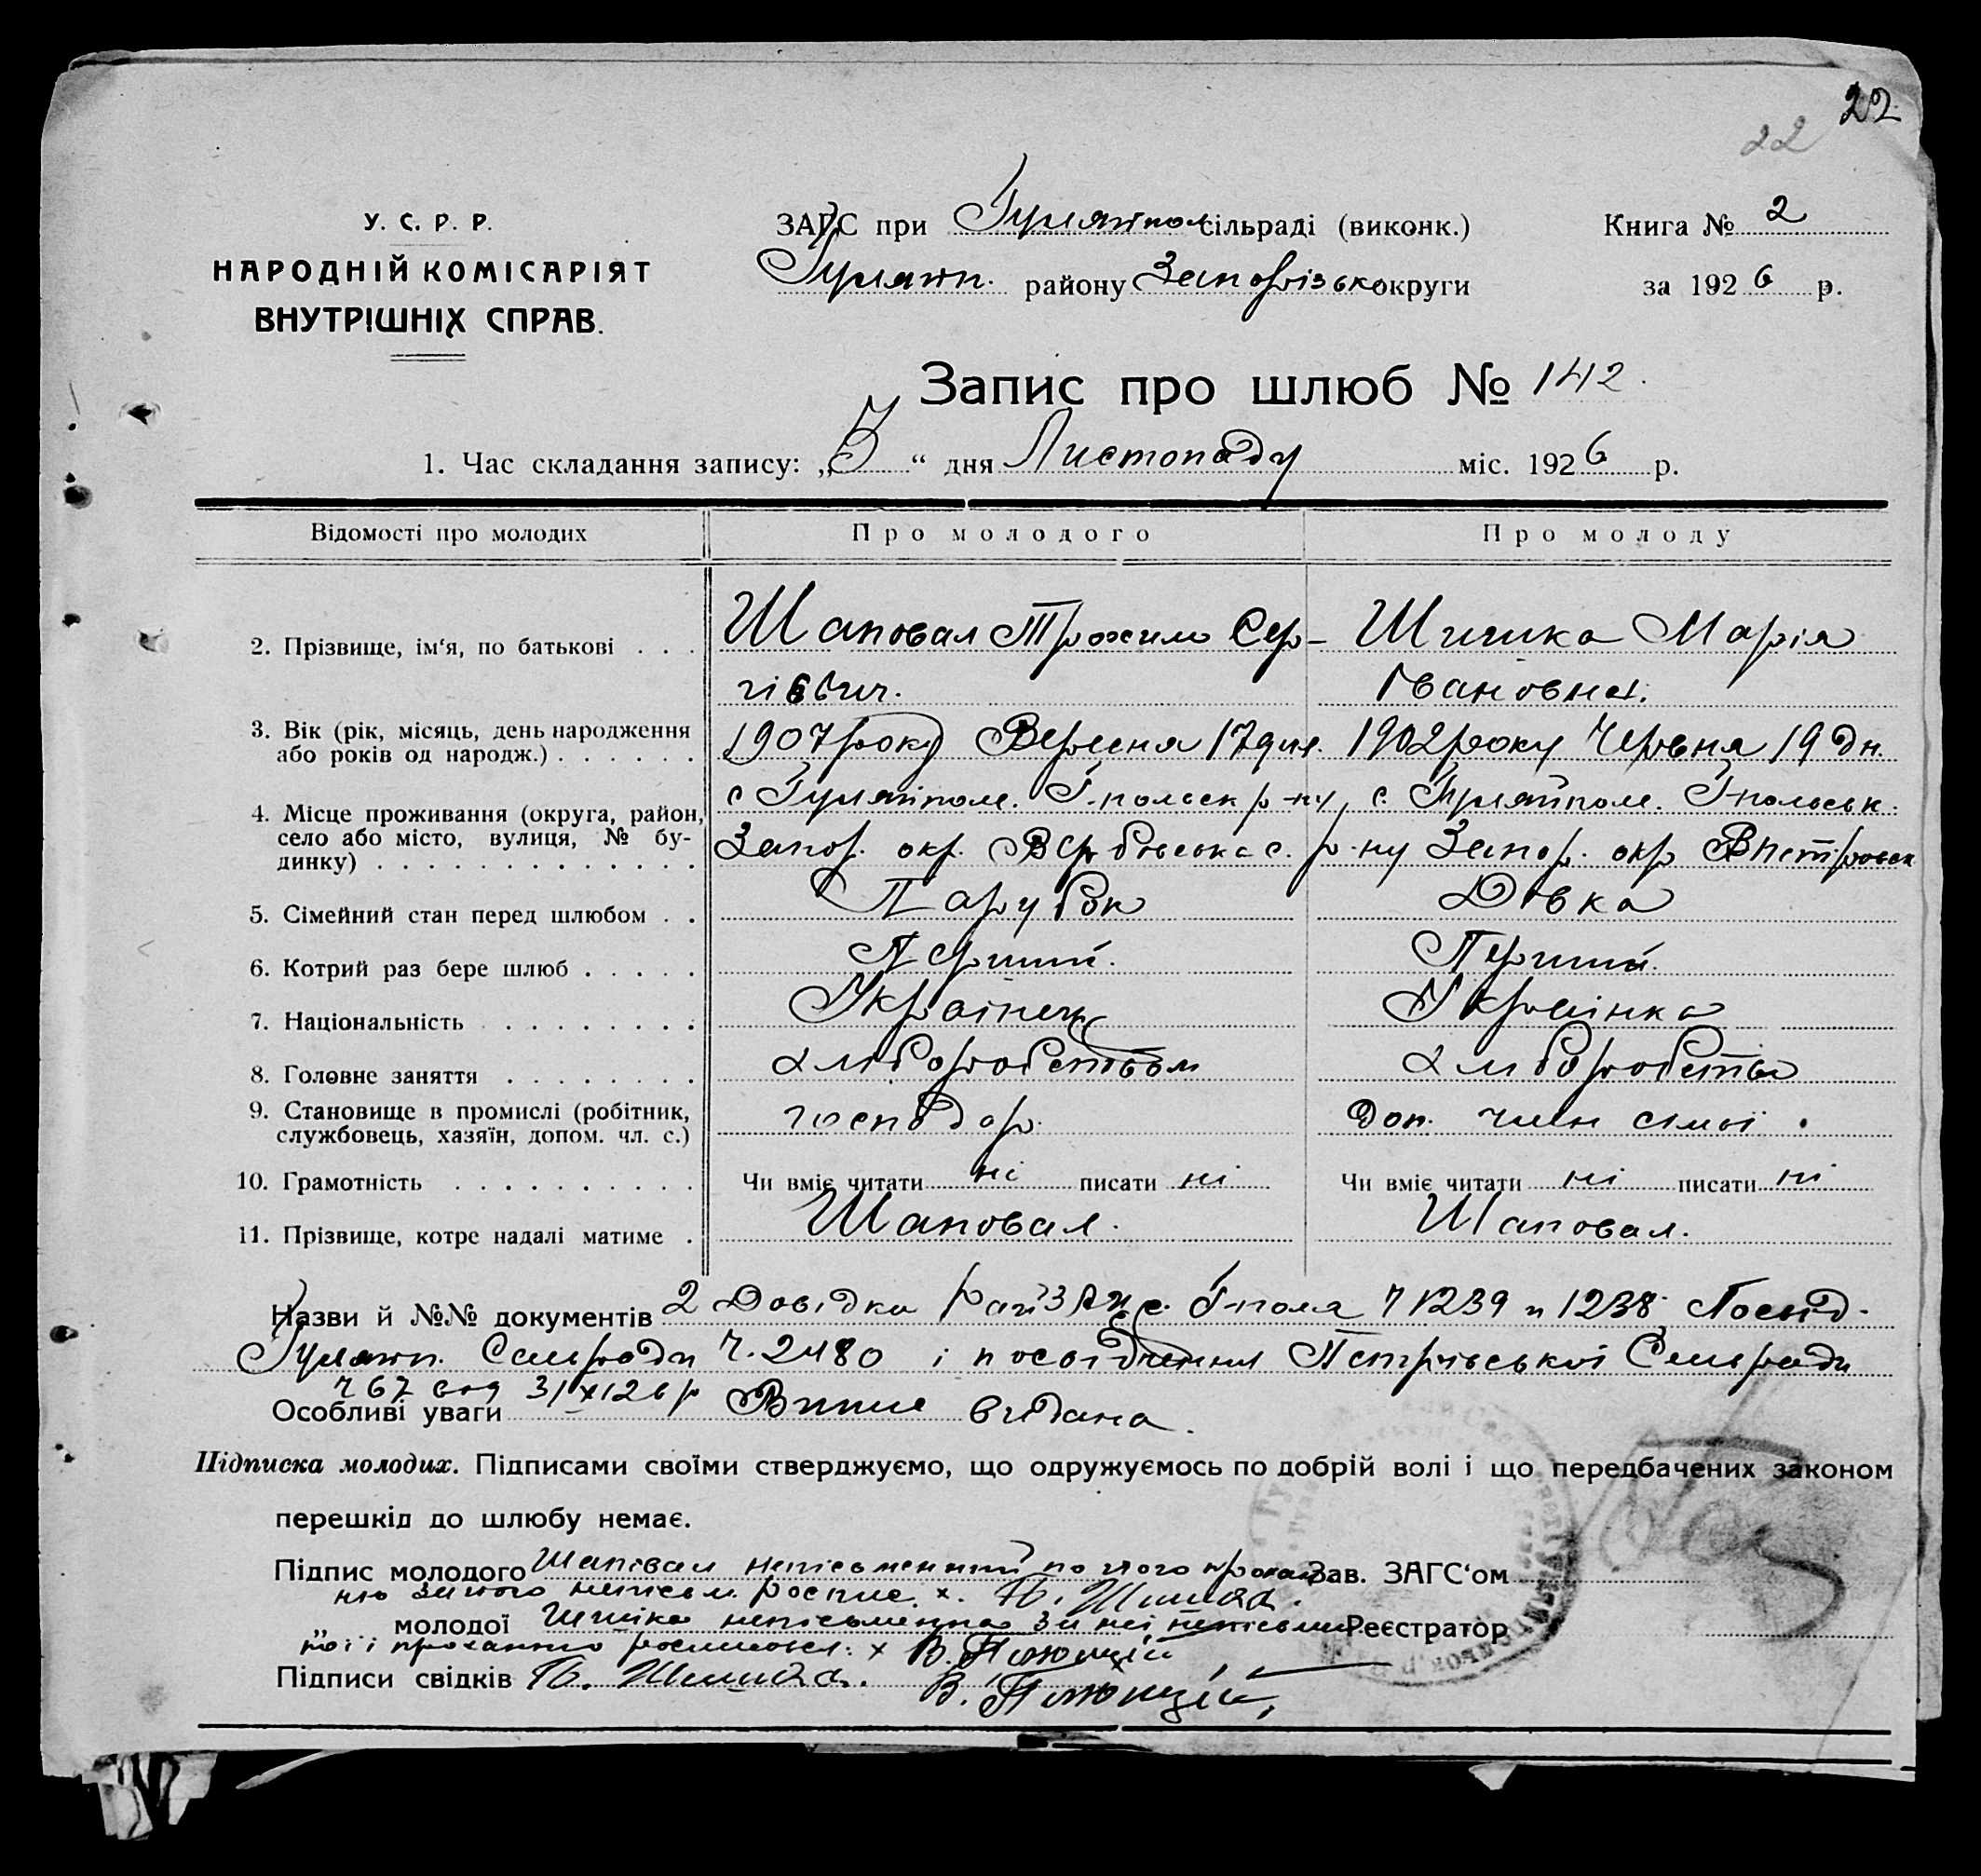 22
22
У. С. Р. Р.
НАРОДНІЙ КОМІСАРІЯТ
ВНУТРІШНІХ СПРАВ.
ЗАГС при Гуляйпол сільраді (виконк.)
Гуляйп. району Запорізьк округи
Книга № 2
за 1926 р.
Запис про шлюб № 142.
1. Час складання запису: „ “ дня Листопаду міс. 1926 р.
Відомості про молодих
Про молодого
Про молоду
2. Прізвище, ім‘я, по батькові . . .
Шаповал Трохим Сер-
гіевич.
Шишка Марія
Івановна.
3. Вік (рік, місяць, день народження
або років од народж.) . . . . . .
1907 року Вересня 17 дня.
1902 року Червня 19 дн.
4. Місце проживання (округа, район,
село або місто, вулиця, № бу-
динку) . . . . . . . . . . . . .
с Гуляйполе. Г-польськ р-ну,
Запор. окр. Вербовська с.
с. Гуляйполе. Г-польськ.
р-ну Запор. окр
5. Сімейний стан перед шлюбом . .
Парубок
Дівка
6. Котрий раз бере шлюб . . . . .
Перший.
Перший.
7. Національність . . . . . . . . .
Українець
Українка
8. Головне заняття . . . . . . . .
хліборобством
хлібороб­ство
9. Становище в промислі (робітник,
службовець, хазяїн, допом. чл. с.)
господар.
Доп. член сімьї.
10. Грамотність . . . . . . . . . .
Чи вміє читати ні писати ні
Чи вміє читати ні писати ні
11. Прізвище, котре надалі матиме .
Шаповал.
Шаповал.
Назви й №№ документів 2 Довідки Рай Г-поля Ч 1239 и 1238. Посвід.
Гуляйп. Сельради Ч. 2480 і посвідчення Петрівської Сельради
Ч 67 від 31/X 126 р
Особливі уваги Випис видана.
Підписка молодих. Підписами своїми стверджуємо, що одружуємось по добрій волі і що передбачених законом
перешкід до шлюбу немає.
Підпис молодого Шаповал неписьменний по його прохан
ню за його неписьм. роспис. х.
Зав. ЗАГС‘ом
„ молодої Шишка неписьменна за неї
її проханню росписався: х
Реєстратор
Підписи свідків